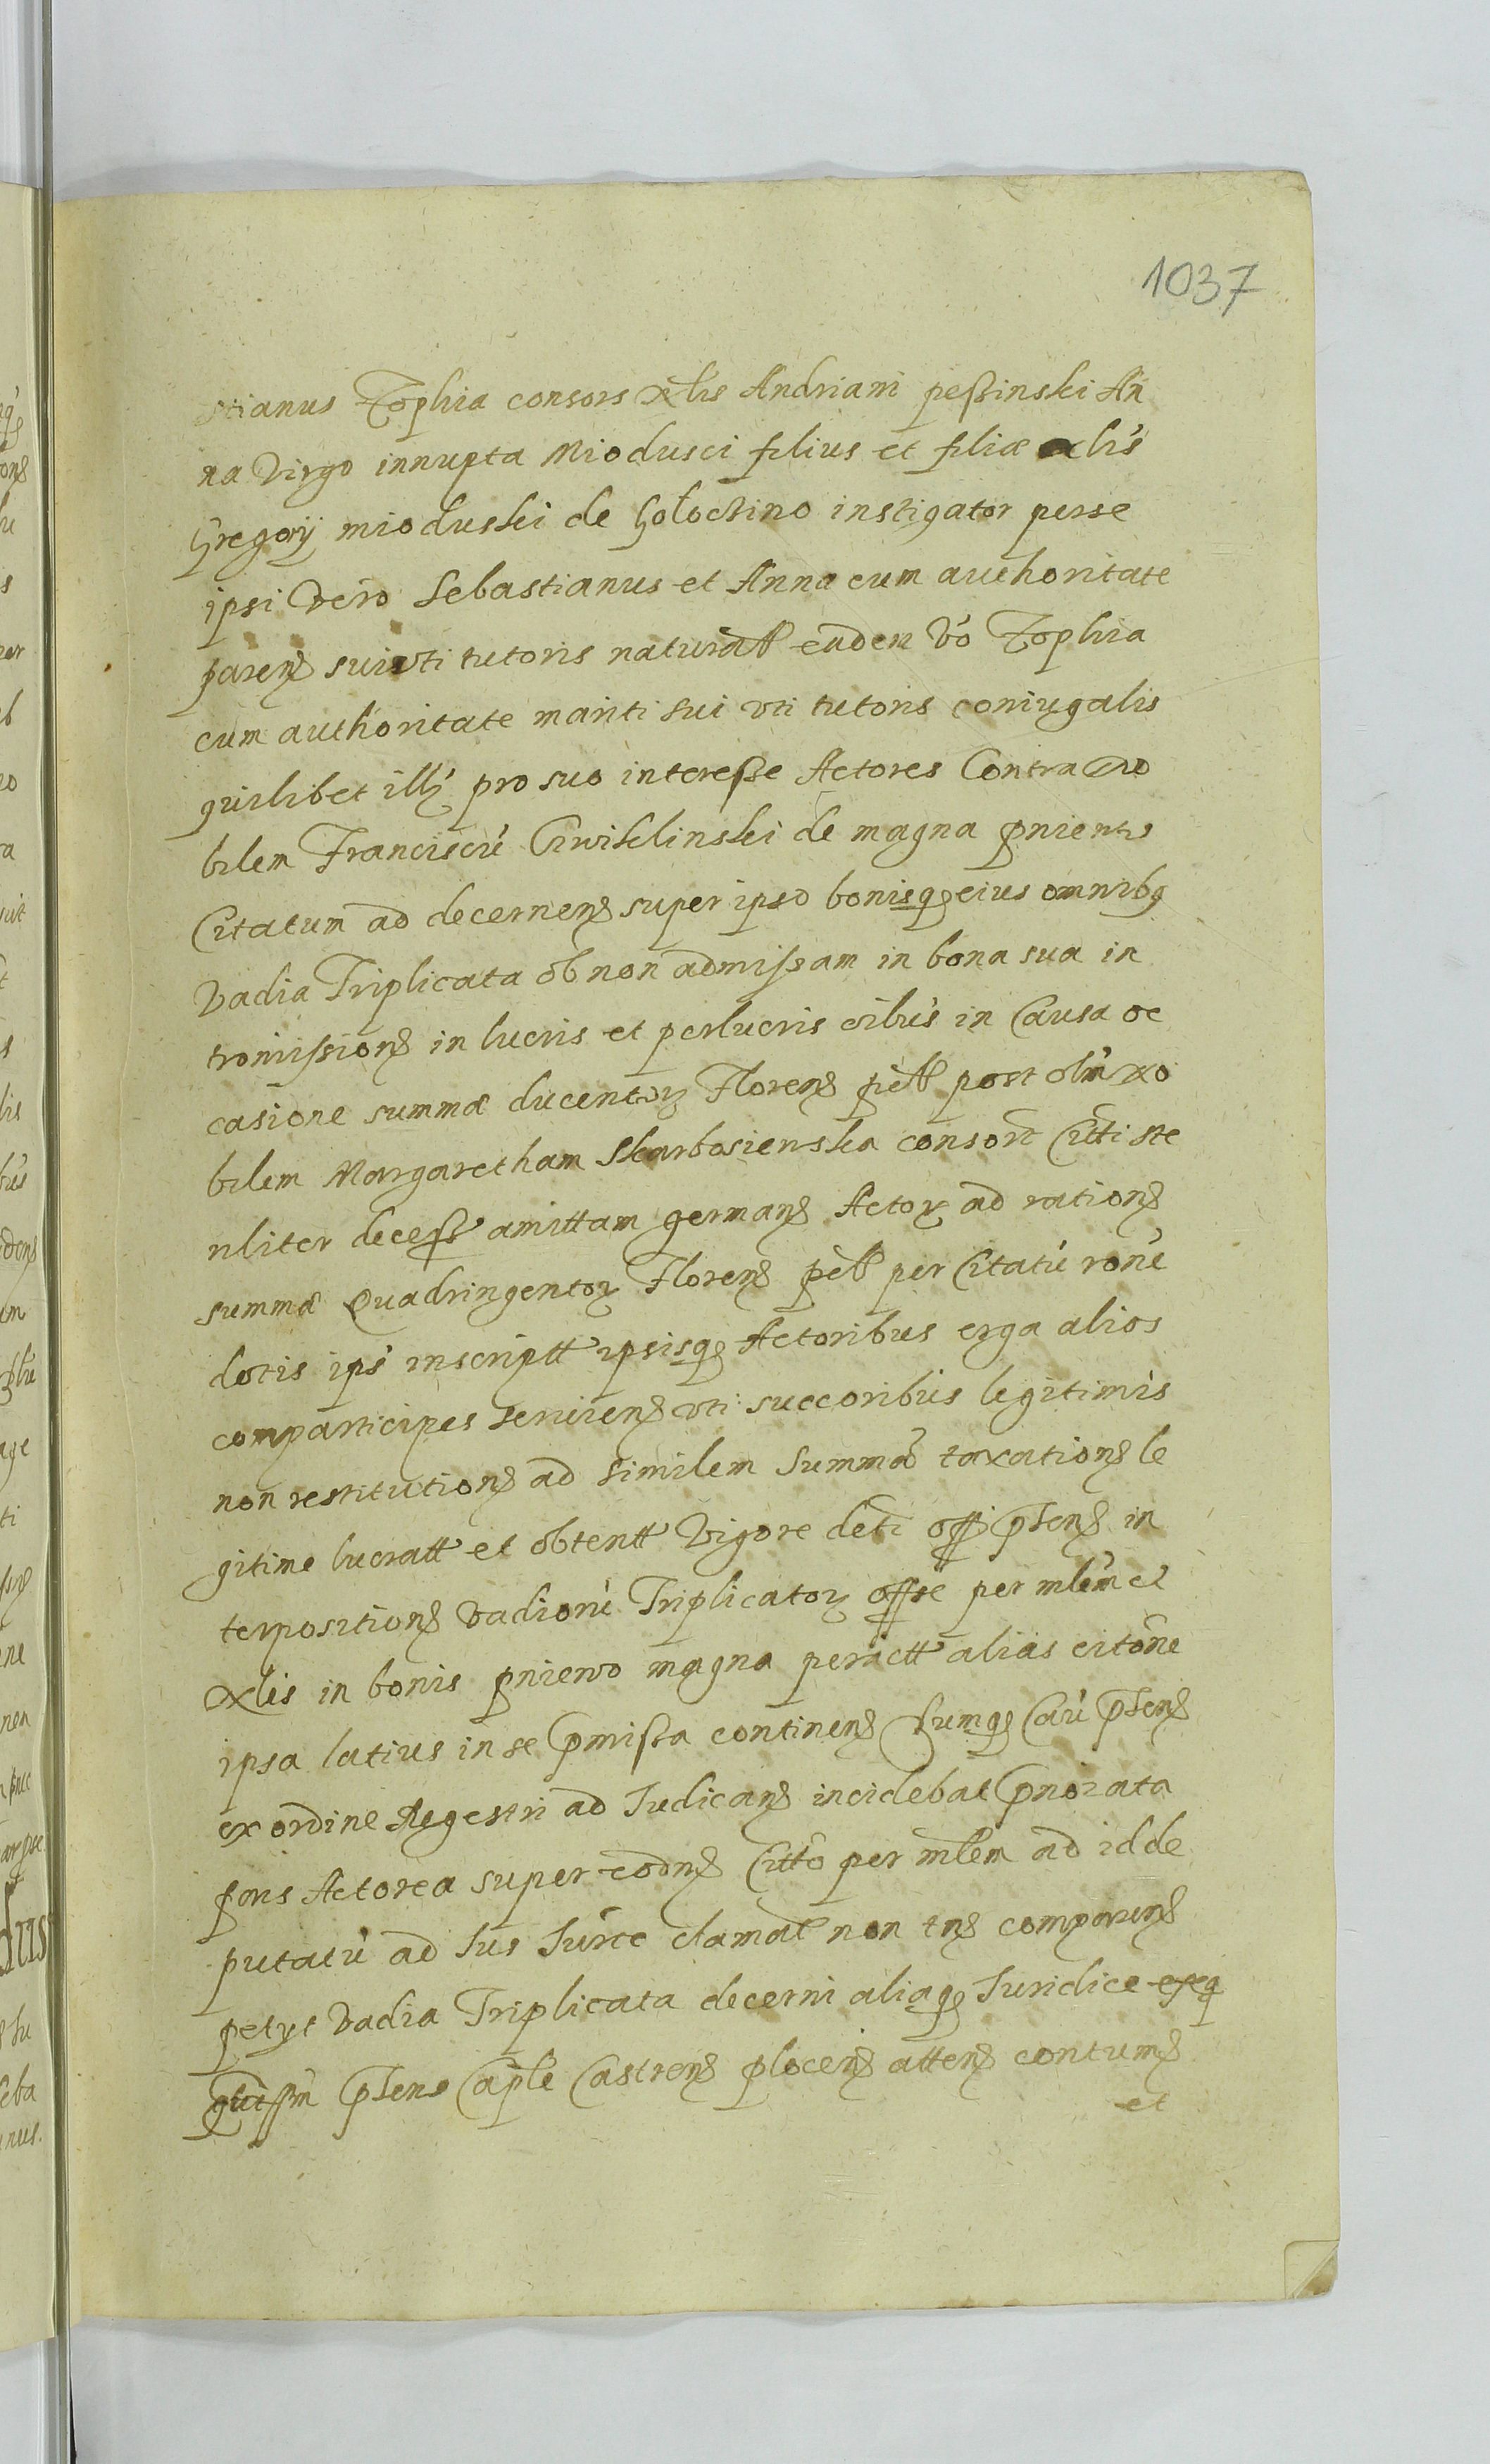 1037
stianus Zophia consors Nlis Andriani peßinski An
na Virgo innupta Miodusci filius et filiæ Nlis
Gregorij mioduski de Holochino instigator perse
ipsi Vero Sebastianus et Anna cum authoritate
paren suivti tutoris natural eadem Vo Zophia
cum authoritate mariti sui vti tutoris coniugalis
quilibet illl pro suo intereße Actores Contra No
bilem Franciscu de magna pniewo
Citatum ad decernen super ipso bonisq eius omnibq
Vadia Triplicata ob non admißam in bona sua in
tromißion in lucris et perlucris oibus in Causa oc
casione summæ ducentor Floren pol post olim No
bilem Margaretham Skarbosienska consort Citti ste
riliter deceß amittam german Actor ad ration
summæ Quadringentor Floren pol per Citatu rone
dotis ips inscriptt ipsisq Actoribus erga alios
comparticipes servien vti succoribus legitimis
non restitution ad similem summæ taxation le
gitime lucratt et obtentt Vigore deti offi psen in
terposition vadioru Triplicator offse per mlem et
Nles in bonis pniewo magna peractt alias citone
ipsa latius in se pmißa continen Cumq Cau psen
ex ordine Regestri ad Iudican incidebat pnoiata
pars Actorea super eodn Citto per mlem ad id de
putatu ad Ius Iurte clamat non tn comparen
petyt Vadia Triplicata decerni aliaq Iuridice exeq
Iudm psens Caple Castren plocen atten contum
et